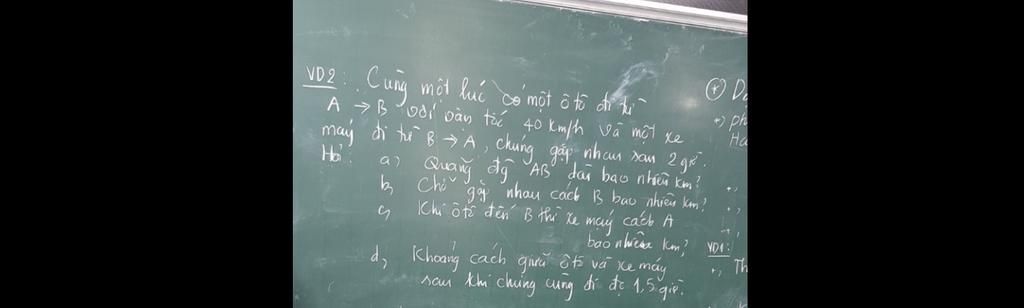 VD2: Cùng một lúc có một ô tô đi từ
A → B với vận tốc 40 km/h và một xe
máy đi từ B → A, chúng gặp nhau sau 2 giờ.
Hỏi: a) Quãng đg AB dài bao nhiêu km?
b) Chỗ gặp nhau cách B bao nhiêu km?
c) Khi ô tô đến B thì xe máy cách A
bao nhiêu km?
d) Khoảng cách giữa ô tô và xe máy
sau khi chúng cùng đi đc 1,5 giờ.
VD1: